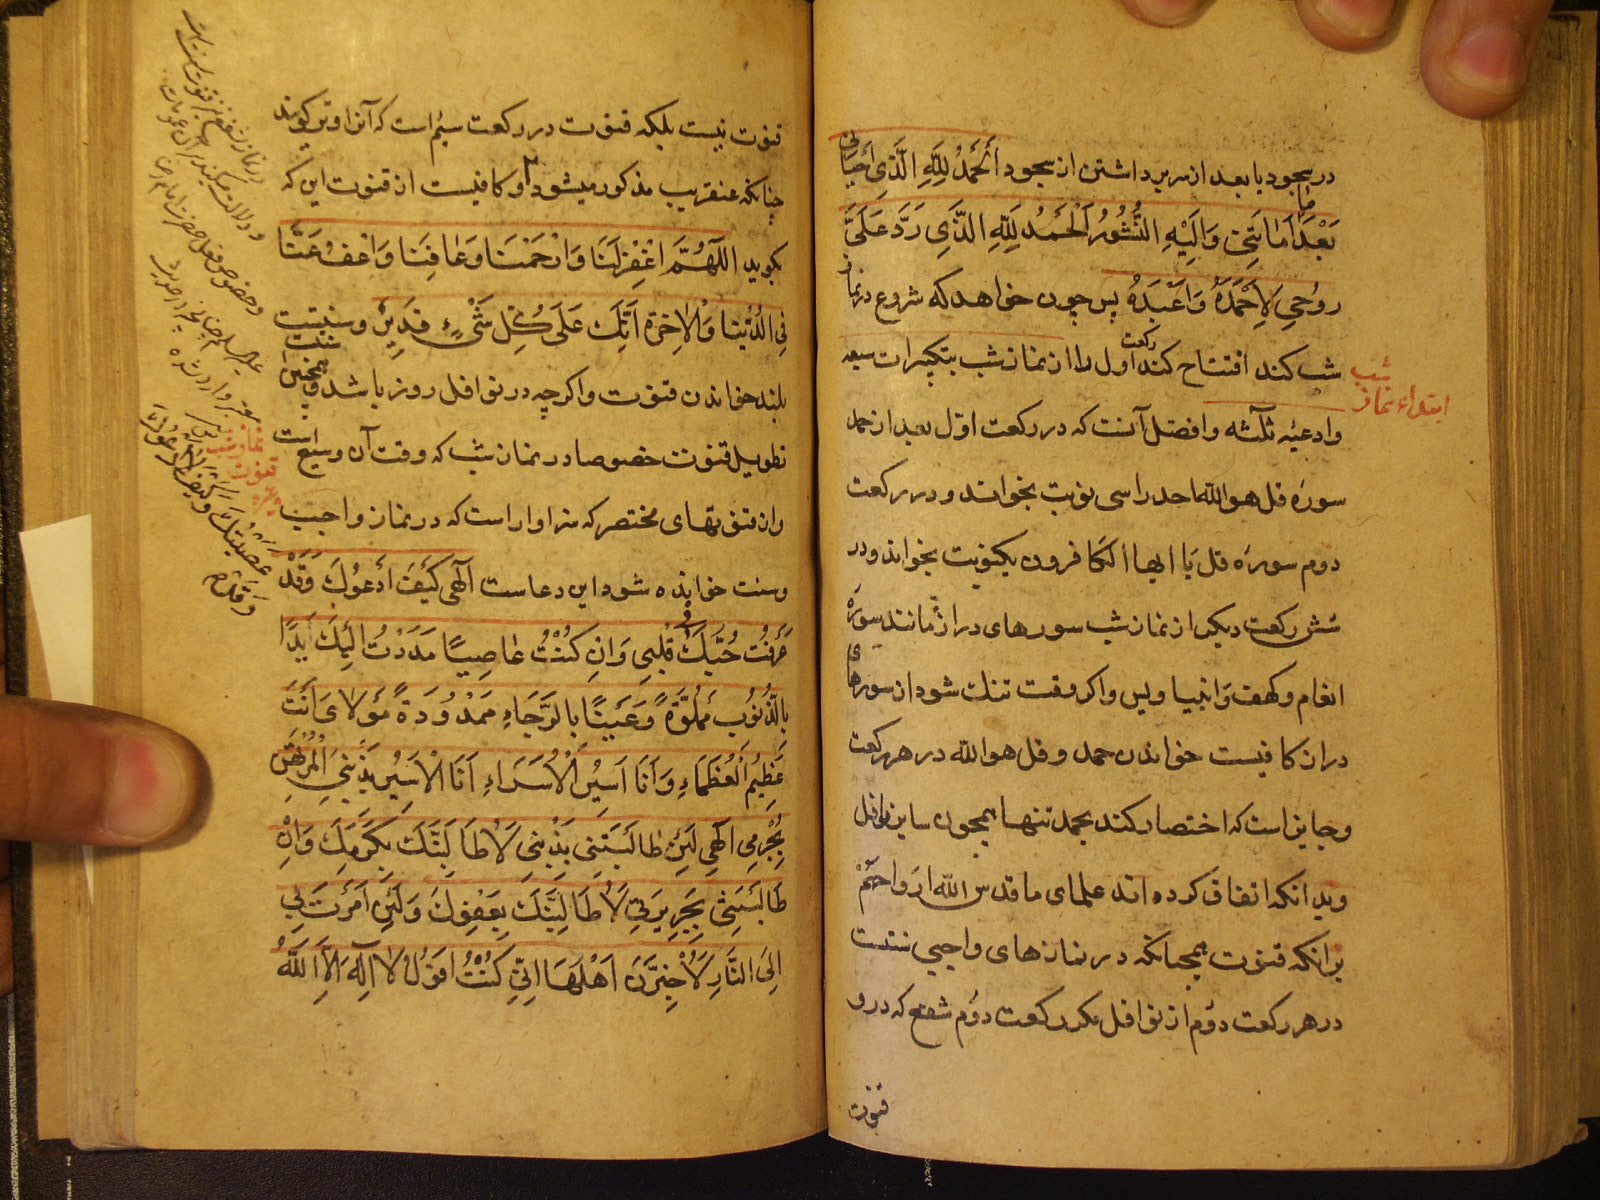 در سجود یا بعد از سر برداشتن از سجود اَلْحَمْدُ لِلّهِ الَّذِی اَحْیَانِی
بَعْدَ مَا اَمَاتَنِی وَاِلَیْهِ النُّشُورُ اَلْحَمْدُ لِلّهِ الَّذِی رَدَّ عَلَیَّ
رُوحِی لِاَحْمَدَهُ وَاَعْبُدَهُ پس چون خواهد که شروع در نماز
شب کند افتتاح کند رکعت اول را از نماز شب بتکبیرات سبعه
شب
ابتداء نماز
وادعیه ثلثه وافضل آنست که در رکعت اوّل بعد از حمد
سوره قل هو الله احد را سی نوبت بخواند و در رکعت
دوم سوره قل یا ایها الکافرون یکنوبت بخواند و در
شش رکعت دیگر از نماز شب سورهای دراز مانند سوره
انعام و کهف وانبیا ویس واکر وقت تنک شود از سورهای
دراز کافیست خواندن حمد و قل هو الله در هر رکعت
وجایز است که اختصار کند بحمد تنها همچون سایر نوافل
وبدانکه اتفاق کرده اند علمای ما قدس الله ارواحهم
برانکه قنوت همچنانکه در نمازهای واجبی سنتست
در هر رکعت دوم از نوافل مکر رکعت دوم شفع که درو
قنوت
قنوت نیست بلکه قنوت در رکعت سیم است که آنرا وتر کویند
چنانکه عنقریب مذکور میشود وکافیست از قنوت این که
بکوید اَللّهُمَّ اغْفِرْ لَنَا وَارْحَمْنَا وَعَافِنَا وَاعْفُ عَنَّا
فِی الدُّنْیَا وَالْاٰخِرَةِ اِنَّکَ عَلَی کُلِّ شَیْءٍ قَدِیرٌ وسنتست
بلند خواندن قنوت واکرچه در نوافل روز باشد وهمچنین سنت
تطویل قنوت خصوصا در نماز شب که وقت آن وسیع است
نماز شب
قنوت
وغیره
واز قنوتهای مختصر که سزاوار است که در نماز واجب
وسنت خوانده شود این دعاست اِلٰهِی کَیْفَ اَدْعُوکَ وَقَدْ
عَصَیْتُکَ وَکَیْفَ لَا اَدْعُوکَ
وَقَدْ
عَرَفْتُ حُبَّکَ فِی قَلْبِی وَاِنْ کُنْتُ عَاصِیًا مَدَدْتُ اِلَیْکَ یَدًا
بِالذُّنُوبِ مَمْلُوَّةً وَعَیْنًا بِالرَّجَاءِ مَمْدُودَةً مَوْلَایَ اَنْتَ
عَظِیمُ الْعُظَمَاءِ وَاَنَا اَسِیرُ الْاُسَرَاءِ اَنَا الْاَسِیرُ بِذَنْبِیَ الْمُرْتَهَنُ
بِجُرْمِی اِلٰهِی لَئِنْ طَالَبْتَنِی بِذَنْبِی لَاُطَالِبَنَّکَ بِکَرَمِکَ وَاِنْ
طَالَبْتَنِی بِجَرِیرَتِی لَاُطَالِبَنَّکَ بِعَفْوِکَ وَلَئِنْ اَمَرْتَ بِی
اِلَی النَّارِ لَاُخْبِرَنَّ اَهْلَهَا اَنِّی کُنْتُ اَقُولُ لَا اِلٰهَ اِلَّا اللهُ